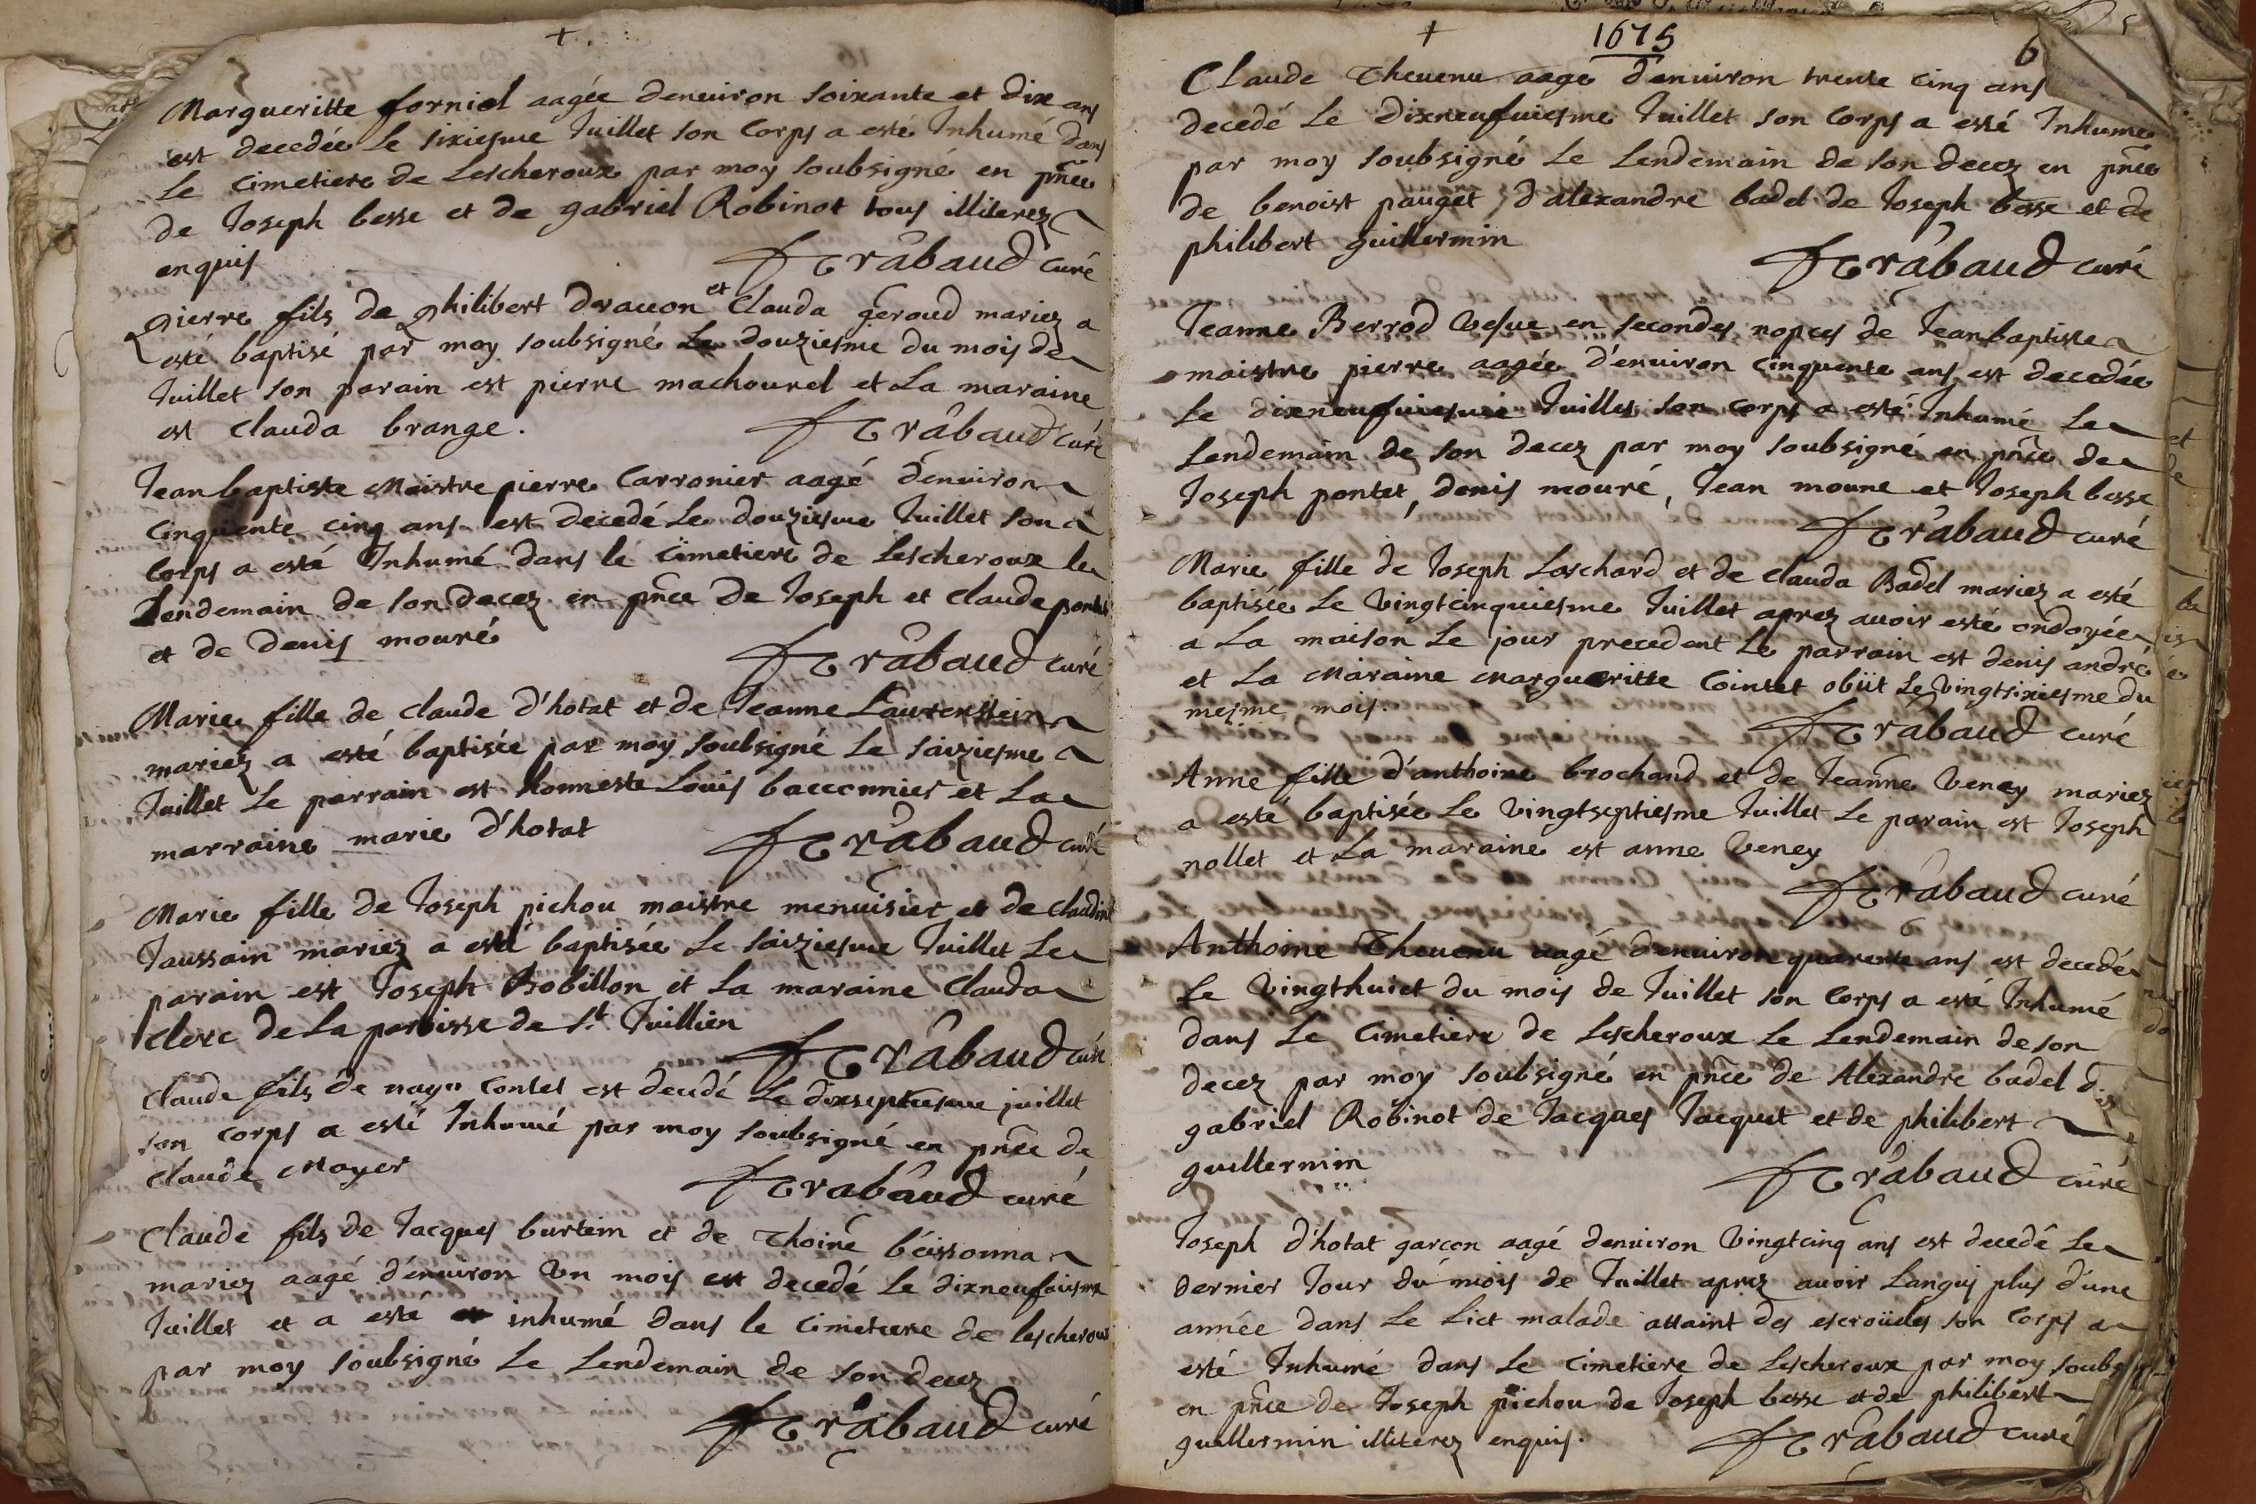 Margueritte forniel aagée denuiron soixante et dix ans
est decedée le sixiesme Juillet son corps a esté Inhumé dans
le cimetiere de Lescheroux par moy soubsigné en pnce
de Joseph besse et de gabriel Robinot tous illiterez
enquis
Trabaud curé
pierre fils de philibert drauon et Clauda geraud mariez a
esté baptisé par moy soubsigné le douziesme du mois de
Juillet son parain est pierre machourel et La maraine
est Clauda brange.
Trabaud curé
Jean baptiste Maistre pierre Carronier aagé d'enuiron
cinquente cinq ans est decedé Le douziesme Juillet son
Corps a esté Inhumé dans le cimetiere de Lescheroux le
Lendemain de son decez en pnce de Joseph et claude pontet
et de Denis mouré
Trabaud curé
Marie fille de claude d'hotat et de Jeanne
mariez a esté baptisée par moy soubsigné Le saiziesme
Juillet Le parrain est honneste Louis bacconnier et La
marraine marie d'hotat
Trabaud curé
Marie fille de Joseph pichou maistre menuisier et de claudine
Jaussain mariez a esté baptisée Le saiziesme Juillet Le
parain est Joseph Robillon et La maraine Clauda
Clerc de La paroisse de St Juillien
Trabaud curé
Claude fils de Contet est decedé Le dixseptiesme juillet
son corps a esté Inhumé par moy soubsigné en pnce de
claude Mayer
Trabaud curé
Claude fils de Jacques burtein et de Thoine béissonna
mariez aagé d'enuiron Vn mois est decedé Le dixneufuiesme
Juillet et a esté inhumé dans le Cimetiere de lescheroux
par moy soubsigné Le Lendemain de son decez
Trabaud curé
1675
6
Claude Theuenu aagé d'enuiron trente cinq ans
decedé Le dixneufuiesme Juillet son Corps a esté Inhumé
par moy soubsigné Le Lendemain de son decez en pnce
de benoist pauget, d'alexandre badel de Joseph besse et de
philibert guillermin
Trabaud curé
Jeanne Berrod Vefue en secondes nopces de Jean baptiste
maistre pierre aagée d'enuiron cinquente ans est decedée
Le dixneufuiesme Juillet son corps a esté Inhumé Le
Lendemain de son decez par moy soubsigné en pnce de
Joseph pontet, denis mouré, Jean moune et Joseph besse
Trabaud curé
Marie fille de Joseph Loschard et de clauda Badel mariez a esté
baptisée Le Vingtcinquiesme Juillet aprez auoir esté ondoyée
a La maison Le jour precedent Le parrain est denis andré
et La Maraine Margueritte Cointet obiit Le Vingtsixiesme du
mesme mois.
Trabaud curé
Anne fille d'anthoine brochand et de Jeanne Veney mariez
a esté baptisée Le Vingtseptiesme Juillet Le parain est Joseph
nollet et La maraine est anne Veney
Trabaud curé
Anthoine Theuenu aagé denuiron quarente ans est decedé
Le Vingthuict du mois de Juillet son Corps a esté Inhumé
dans Le Cimetiere de Lescheroux Le Lendemain de son
decez par moy soubsigné en pnce de Alexandre badel de
gabriel Robinot de Jacques Jacquet et de philibert
guillermin
Trabaud curé
Joseph d'hotat garcon aagé denuiron Vingtcinq ans est decedé Le
dernier Jour du mois de Juillet aprez auoir Languy plus d'une
année dans Le Lict malade attaint des escroüeles son Corps a
esté Inhumé dans Le Cimetiere de Lescheroux par moy soubsigné
en pnce de Joseph pichou de Joseph besse et de philibert
guillermin illiterez enquis.
Trabaud curé